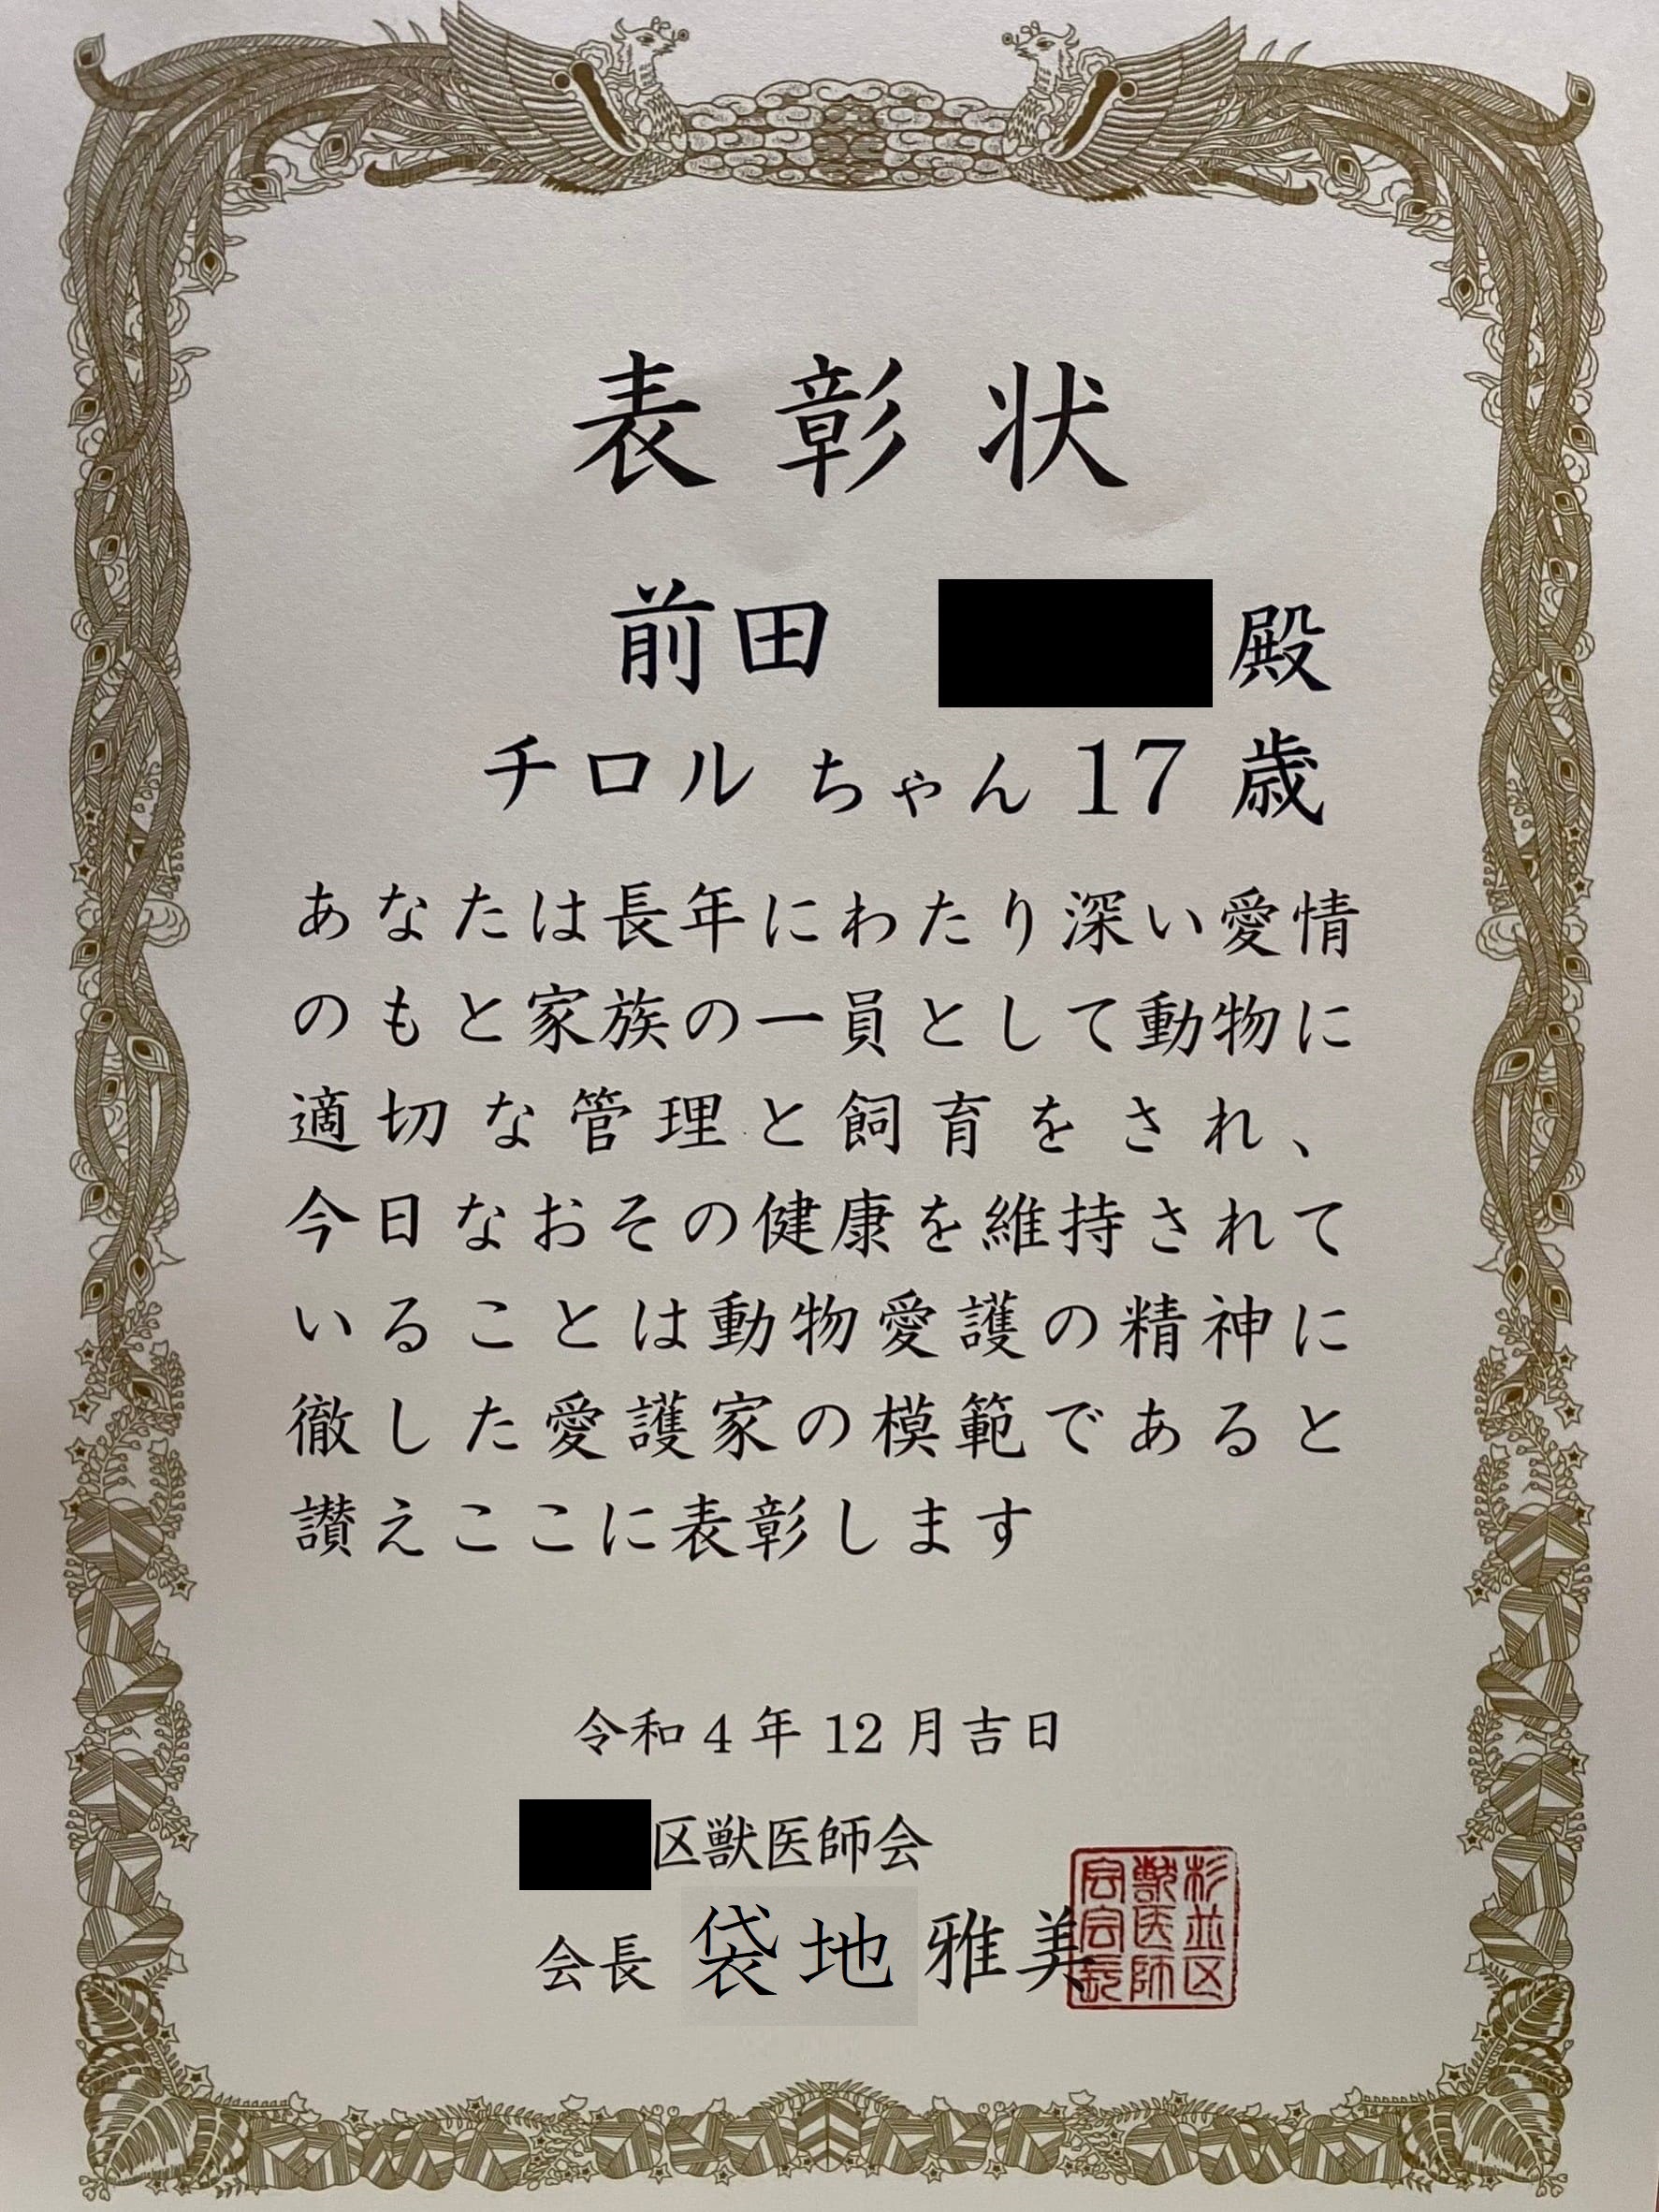 表彰状
前田 殿
チロル ちゃん 17 歳
あなたは長年にわたり深い愛情
のもと家族の一員として動物に
適切な管理と飼育をされ、
今日なおその健康を維持されて
いることは動物愛護の精神に
徹した愛護家の模範であると
讃えここに表彰します
令和 4 年 12 月吉日
区獣医師会
会長 袋地 雅美
杉並区
獣医師
会会長